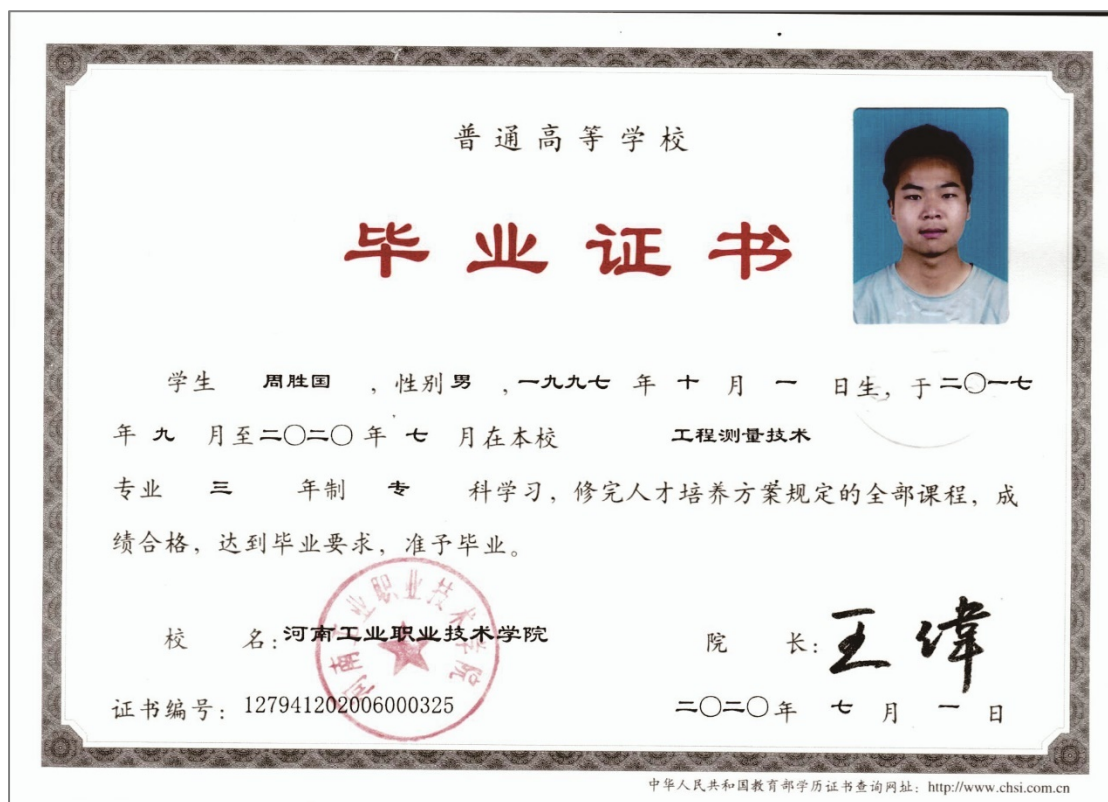 普通高等学校
毕业证书
学生 周胜国 ,性别 男 ,一九九七 年 十 月 一 日生,于 二〇一七
年 九 月至 二〇二〇 年 七 月在本校 工程测量技术
专业 三 年制 专 科学习,修完人才培养方案规定的全部课程,成
绩合格,达到毕业要求,准予毕业。
河南工业职业技术学院
校 名:河南工业职业技术学院
院 长:王伟
证书编号:127941202006000325
二〇二〇年 七 月 一 日
中华人民共和国教育部学历证书查询网址:http://www.chsi.com.cn